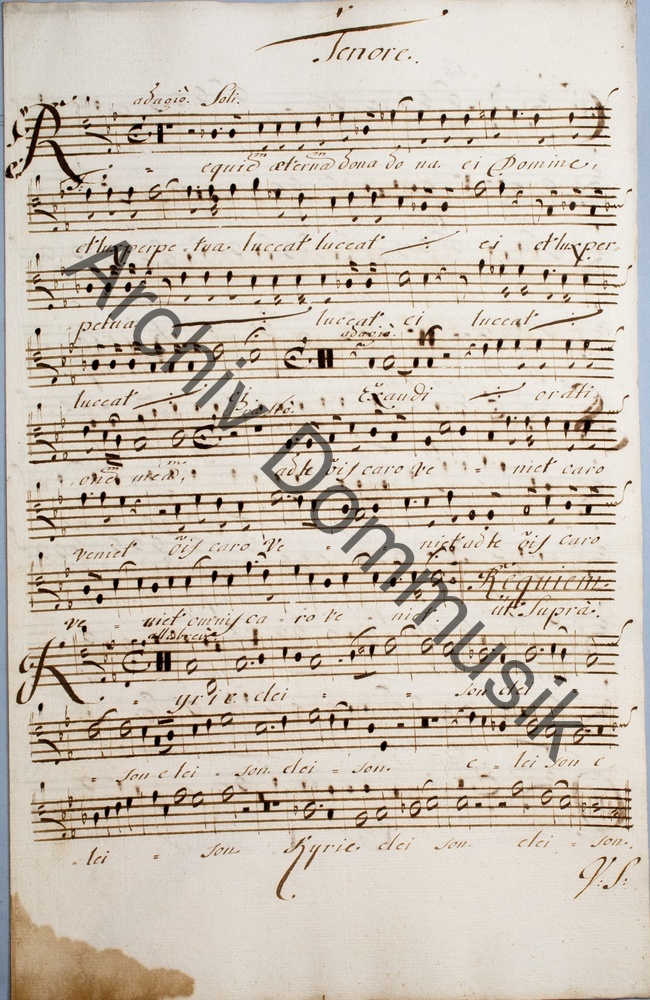 Tenore.
adagio. Soli.
Requiē æternā dona dona ei Domine,
et lux perpetua luceat luceat ei et lux per
petua luceat ei luceat
adagio.
luceat ei. Exaudi orati
onē meā, ad te õis caro ve - niet caro
veniet õis caro ve - niet ad te õis caro
ve - niet omnis ca - ro ve - niet. Requiem
ut Supra.
allabreve.
Kyrie elei - son elei
- son elei - son. elei - son. e - leison e
lei - son Kyrie elei son. elei - son.
V: S:
Archiv Dommusik